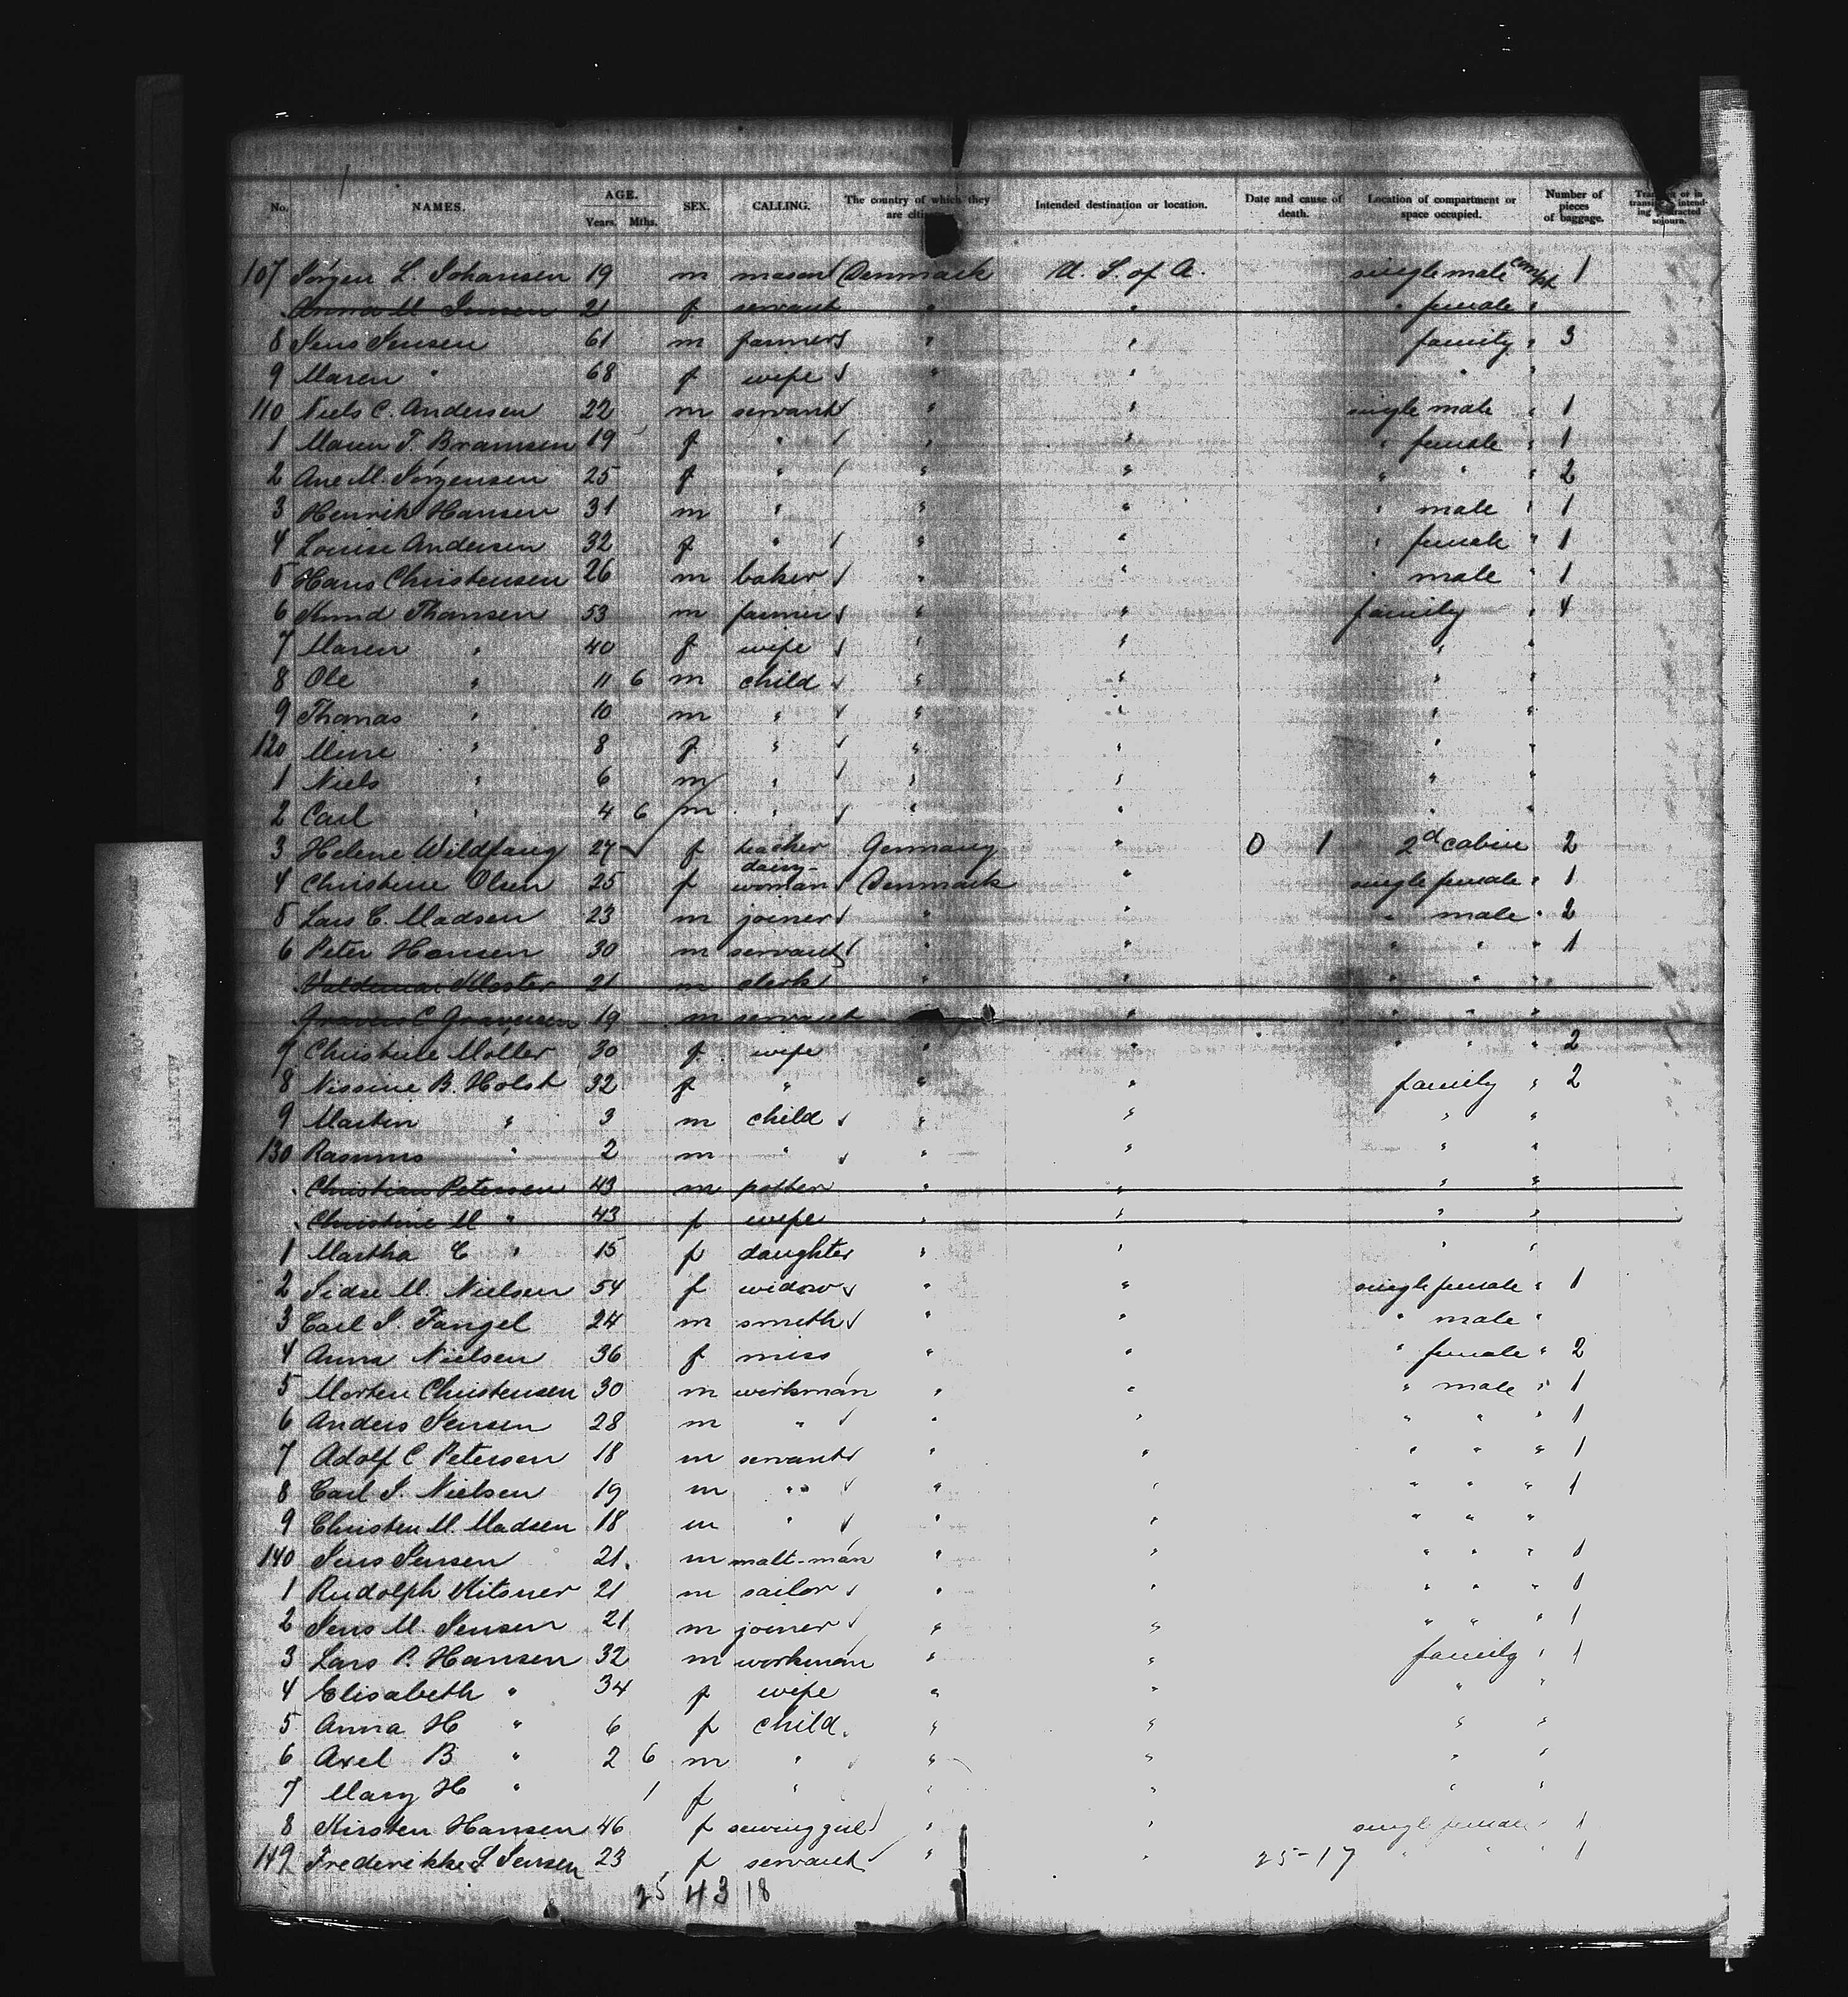 No. NAMES. AGE. Years. Mths. SEX. CALLING. The country of which they are Intended destination or location. Date and cause of death. Location of compartment or space occupied. Number of pieces of baggage.
107 Jørgen L. Johansen 19 m mason Denmark U. S. of A. single male compt 1
Anna M Jensen 21 f servant " " " female "
8 Jens Jensen 61 m farmer " " family " 3
9 Maren " 68 f wife " " " "
110 Niels C. Andersen 22 m servant " " single male " 1
1 Maren T. Bramsen 19 f " " " " female " 1
2 Ane M. Jørgensen 25 f " " " " " " 2
3 Henrik Hansen 31 m " " " " male " 1
4 Louise Andersen 32 f " " " " female " 1
5 Hans Christensen 26 m baker " " " male " 1
6 Knud Thomsen 53 m farmer " " family " 4
7 Maren " 40 f wife " " " "
8 Ole " 11 6 m child " " " "
9 Thomas " 10 m " " " " "
120 Mine " 8 f " " " " "
1 Niels " 6 m " " " " "
2 Carl " 4 6 m " " " " "
3 Helene Wildfang 27 f teacher Germany " 0 1 2d cabin 2
4 Christine Olsen 25 f dairy-woman Denmark " single female " 1
5 Lars C. Madsen 23 m joiner " " " male " 2
6 Peter Hansen 30 m servant " " " " " 1
Valdemar Kloster 21 m clerk " " " " "
C 19 m servant " " " "
7 Christine Møller 30 f wife " " " " " 2
8 Nissine B. Holst 32 f " " " family " 2
9 Martin " 3 m child " " " "
130 Rasmus " 2 m " " " " "
Christian Petersen 43 m potter " " " "
Christine M " 43 f wife " " " "
1 Martha C " 15 f daughter " " " "
2 Sidse M. Nielsen 54 f widow " " single female " 1
3 Carl J. Fangel 24 m smith " " " male "
4 Anna Nielsen 36 f miss " " " female " 2
5 Morten Christensen 30 m workman " " " male " 1
6 Anders Jensen 28 m " " " " " " 1
7 Adolf C Petersen 18 m servant " " " " " 1
8 Carl J. Nielsen 19 m " " " " " " 1
9 Christen M. Madsen 18 m " " " " " "
140 Jens Jensen 21 m malt-man " " " " " 1
1 Rudolph Kitsner 21 m sailor " " " " " 1
2 Jens M. Jensen 21 m joiner " " " " " 1
3 Lars P. Hansen 32 m workman " " family " 1
4 Elisabeth " 34 f wife " " " "
5 Anna H " 6 f child " " " "
6 Axel B " 2 6 m " " " " "
7 Mary H " 1 f " " " " "
8 Kirsten Hansen 46 f sewing girl " " single female 1
149 Frederikke S Jensen 23 f servant " " 25-17 " " " 1
25 43 18